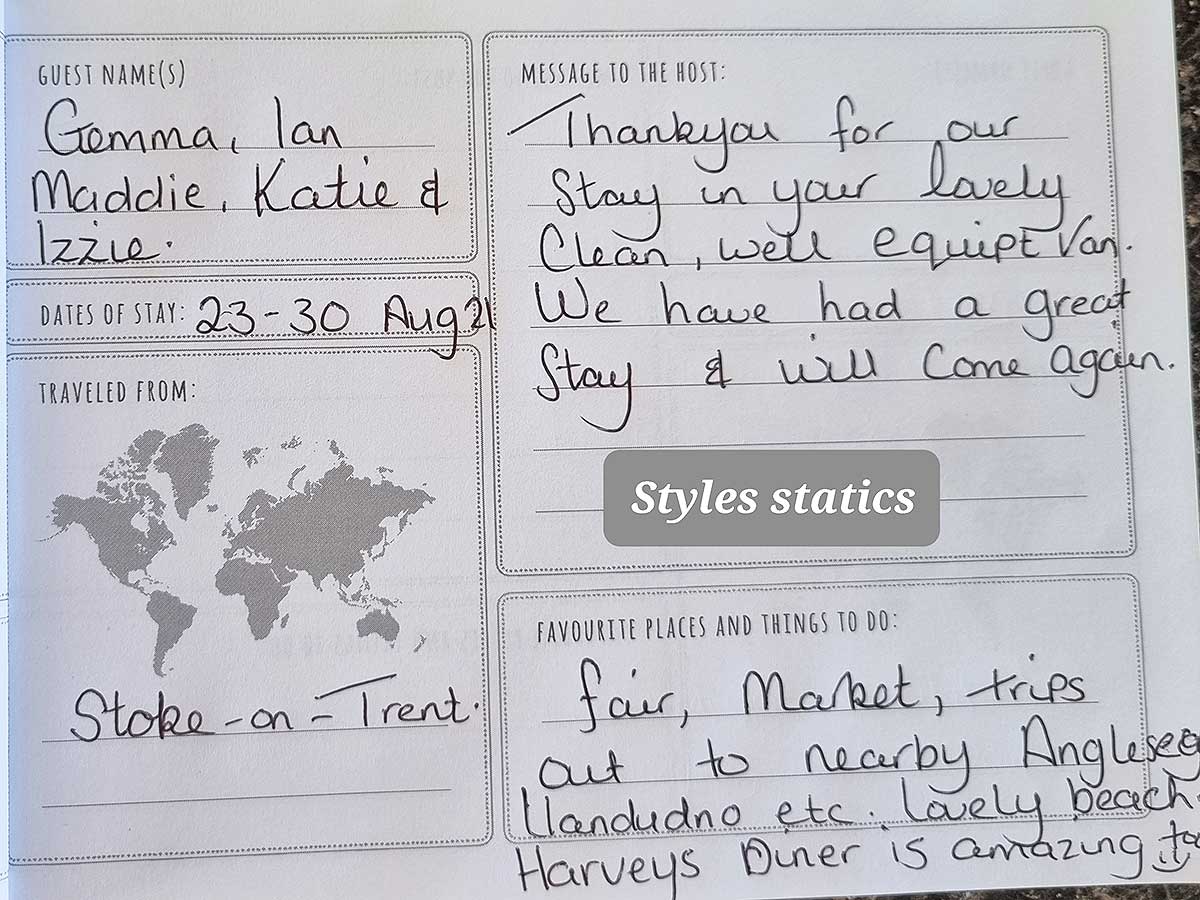 GUEST NAME(S)
Gemma, Ian
Maddie, Katie &
Izzie.
DATES OF STAY: 23-30 Aug 21
TRAVELED FROM:
Stoke-on-Trent.
MESSAGE TO THE HOST:
Thankyou for our
Stay in your lovely
Clean, well equipt Van.
We have had a great
Stay & will Come again.
Styles statics
FAVOURITE PLACES AND THINGS TO DO:
fair, Market, trips
out to nearby Anglesea
Llandudno etc. lovely beach.
Harveys Diner is amazing